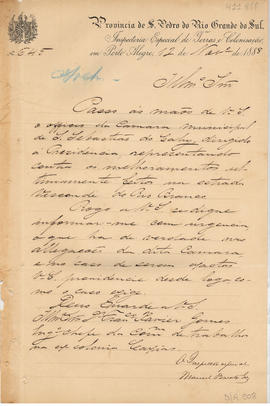 422 888
Provincia de S. Pedro do Rio Grande do Sul.
Inspectoria Especial de Terras e Colonisação,
em Porto Alegre, 12 de Nov.º de 1888
Illmº Snr
Passo ás mãos de V. S.
o officio da Camara Municipal
de S. Sebastião do Cahy, dirigido
á Presidencia, representando
contra os melhoramentos ul-
timamente feitos na estrada
Visconde do Rio Branco.
Rogo a V. S. se digne
informar-me com urgencia
o que ha de verdade nas
allegações da dita Camara
e no caso de serem exactas
V. S. providencie desde logo co-
mo o caso exige.
Deus Guarde a V. S.
Illmº Snr Dr Franco Xavier Gomes
Engº Chefe da Comm de trabalhos
na ex colonia Caxias
O Inspector especial
Manoel
DIR.008